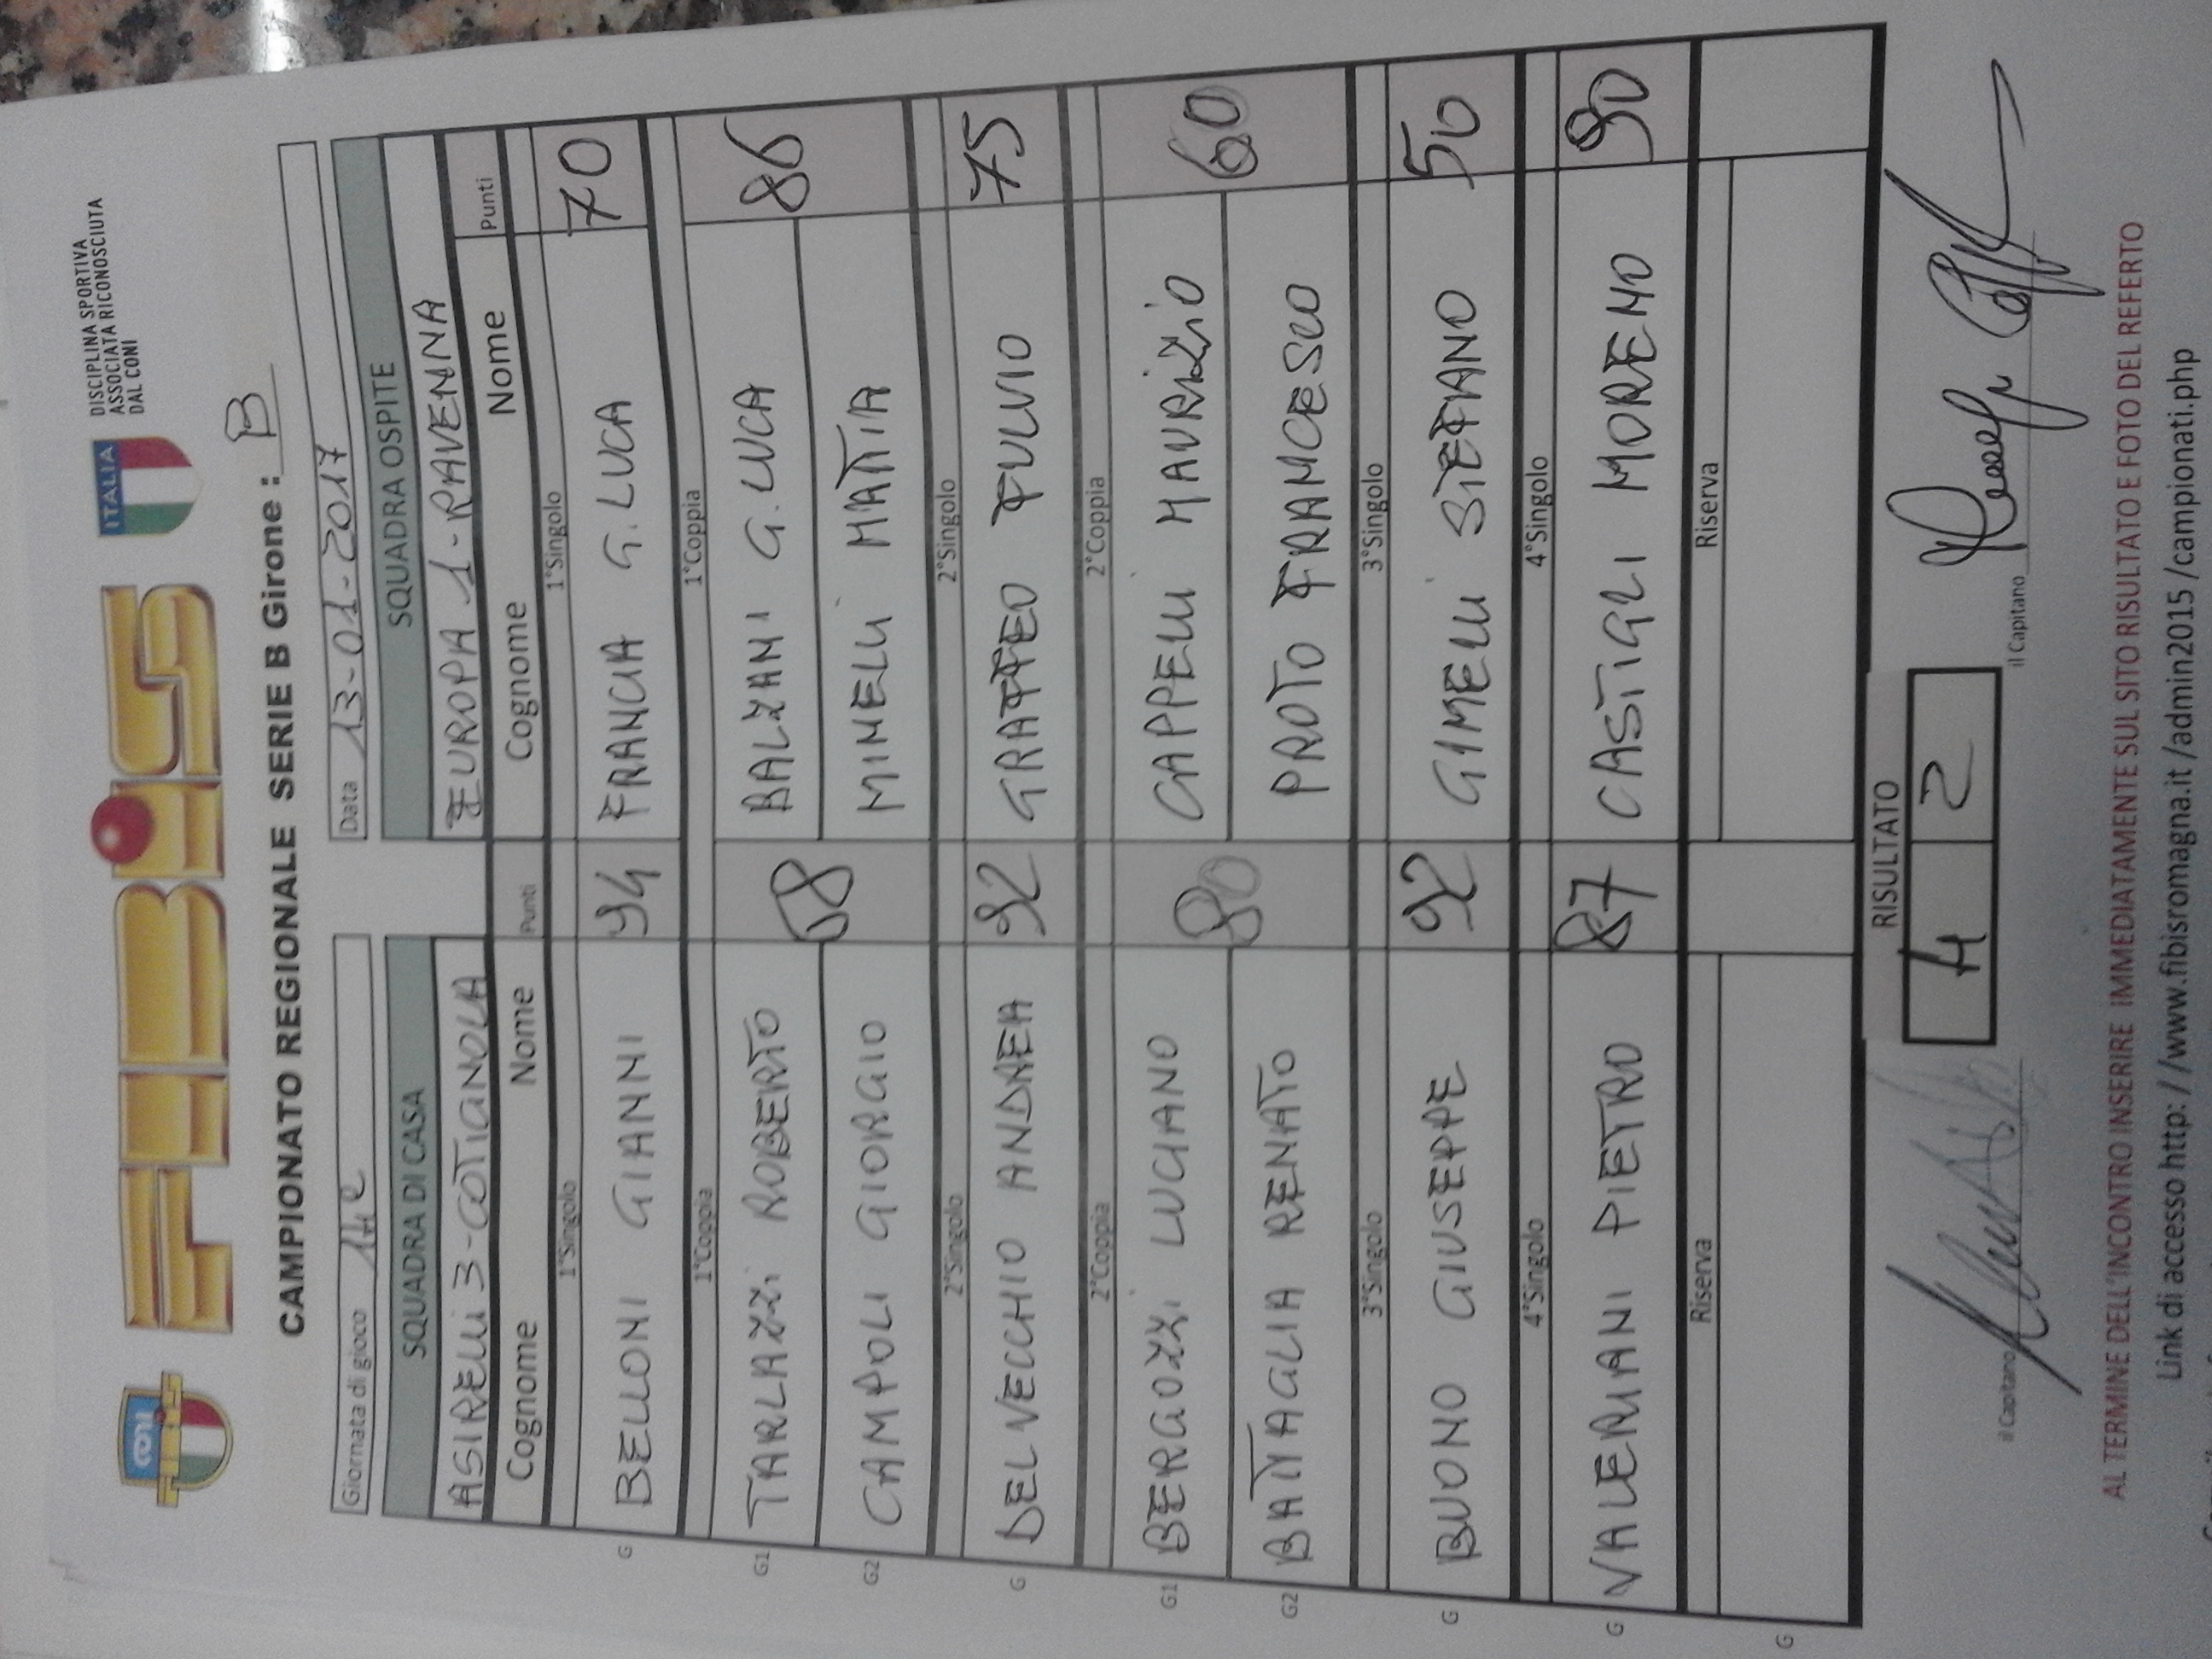 CONI
FIBIS
FIBiS
ITALIA
DISCIPLINA SPORTIVA
ASSOCIATA RICONOSCIUTA
DAL CONI
CAMPIONATO REGIONALE SERIE B Girone : B
Giornata di gioco
Data 13-01-2017
SQUADRA DI CASA SQUADRA OSPITE
ASIRELLI 3-COTIGNOLA EUROPA 1-RAVENNA
Cognome Nome Punti Cognome Nome Punti
1°Singolo 1°Singolo
G BELLONI GIANNI 94 FRANCIA G.LUCA 70
1°Coppia 1°Coppia
G1 TARLAZZI ROBERTO 68 BALZANI G.LUCA 86
G2 CAMPOLI GIORGIO MINELLI MATTIA
2°Singolo 2°Singolo
G DEL VECCHIO ANDREA 92 GRAFFEO FULVIO 75
2°Coppia 2°Coppia
G1 BERGOZZI LUCIANO 80 CAPPELLI MAURIZIO 60
G2 BATTAGLIA RENATO PROTO FRANCESCO
3°Singolo 3°Singolo
G BUONO GIUSEPPE 92 GIMELLI STEFANO 50
4°Singolo 4°Singolo
G VALERIANI PIETRO 87 CASTIGLI MORENO 90
Riserva Riserva
G
RISULTATO
4 2
il Capitano il Capitano
AL TERMINE DELL'INCONTRO INSERIRE IMMEDIATAMENTE SUL SITO RISULTATO E FOTO DEL REFERTO
Link di accesso http: / /www.fibisromagna.it /admin2015 /campionati.php